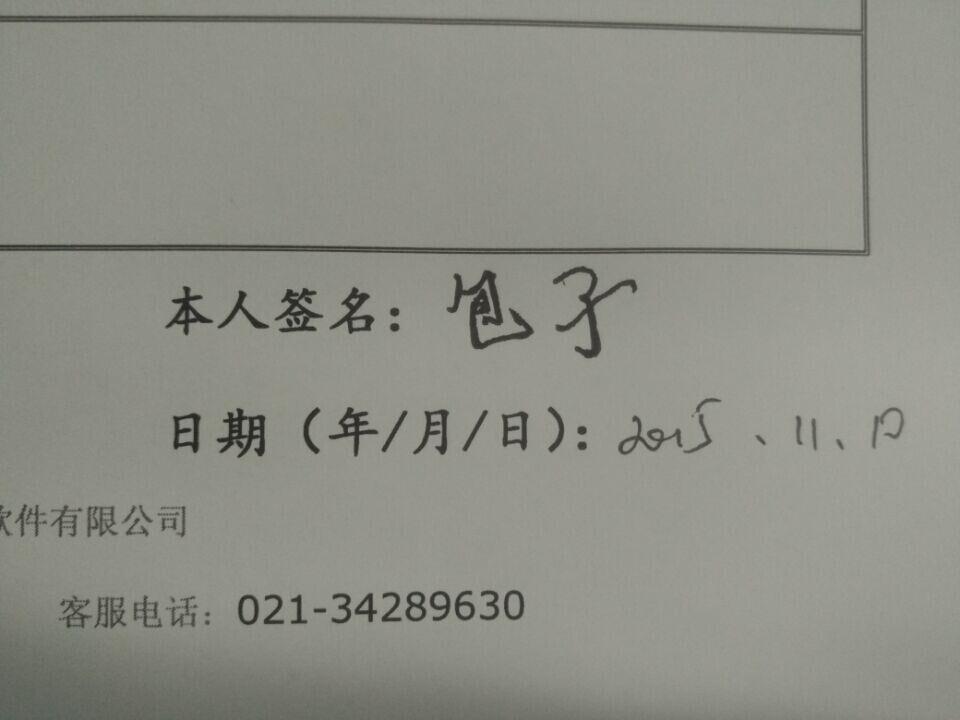 本人签名：
日期（年/月/日）：2015、11、10
软件有限公司
客服电话：021-34289630